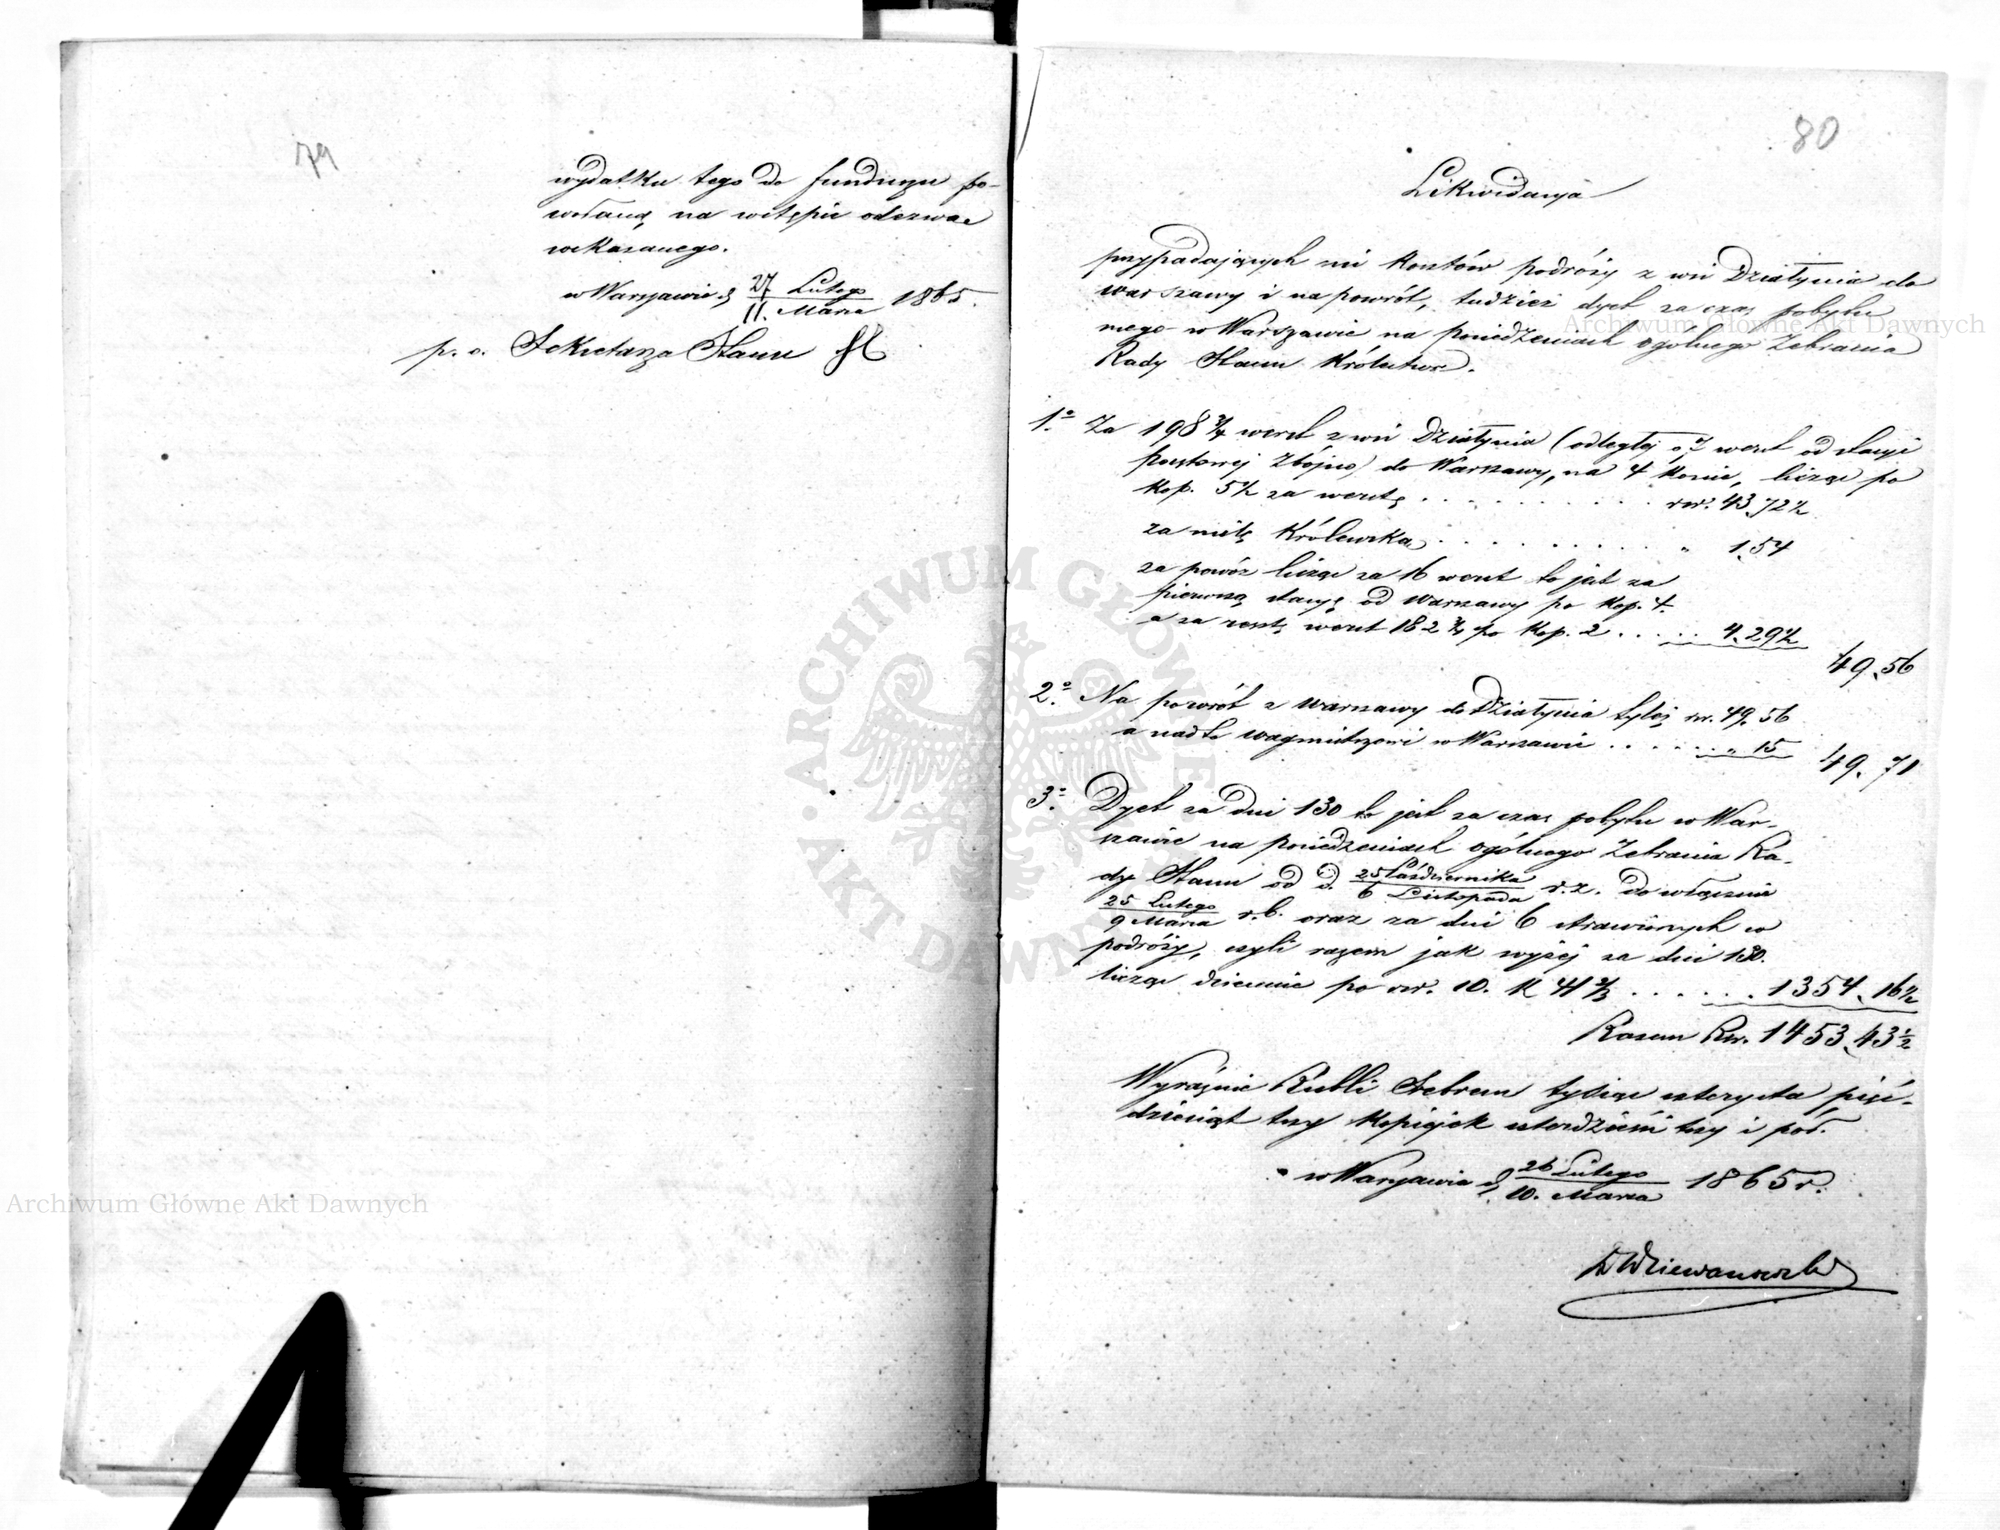 79
wydatku tego do funduszu po-
wołaną na wstępie odezwą
wskazanego.
w Warszawie d. 27 Lutego / 11. Marca 1865.
p. o. Sekretarza Stanu
80
Likwidacja
przypadających mi kosztów podróży z wsi Działynia do
Warszawy i na powrót, tudzież dyet za czas pobytu
mego w Warszawie na posiedzeniach ogólnego Zebrania
Rady Stanu Królestwa.
1º. Za 198 3/4 werst z wsi Działynia (odległej o 7 werst od stacyi
pocztowej Zbójno) do Warszawy, na 4 konie, licząc po
kop. 5 1/2 za werstę . . . . . . . . . . rsr. 43.72 1/2
za milę Królewską . . . . . . . . . " 1.54
za powóz licząc za 16 werst to jest za
pierwszą stacyę od Warszawy po kop. 4.
a za resztę werst 182 3/4 po kop. 2 . . . . . 4.29 1/2
49.56
2º. Na powrót z Warszawy do Działynia tyleż rsr. 49.56
a nadto wagmistrzowi w Warszawie . . . . . . " 15
49.71
3º. Dyet za dni 130 to jest za czas pobytu w War-
szawie na posiedzeniach ogólnego Zebrania Ra-
dy Stanu od d. 25 Października / 6 Listopada r. z. do włącznie
25 Lutego / 9 Marca r. b. oraz za dni 6 strawionych w
podróży, czyli razem jak wyżej za dni 130.
licząc dziennie po rsr. 10. k 41 2/3 . . . . . . 1354.16 1/2
Razem Rsr. 1453.43 1/2
Wyraźnie Rubli Srebrem tysiąc czterysta pięć-
dziesiąt trzy kopiejek czterdzieści trzy i pół.
w Warszawie d. 26 Lutego / 10. Marca 1865 r.
Dziewanowski
Archiwum Główne Akt Dawnych
Archiwum Główne Akt Dawnych
ARCHIWUM GŁÓWNE AKT DAWNYCH